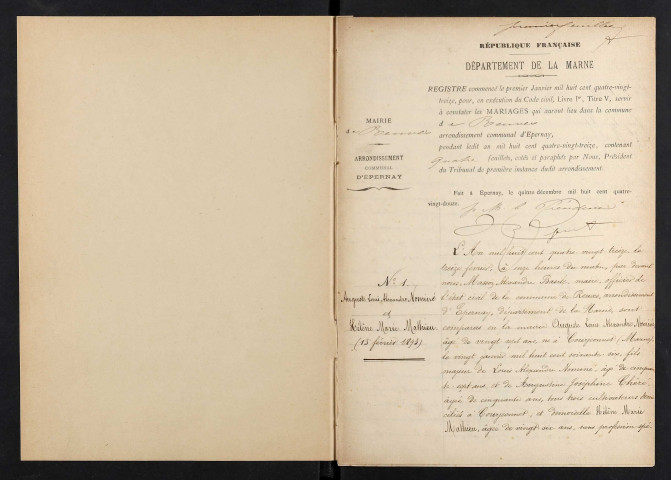 RÉPUBLIQUE FRANÇAISE
DÉPARTEMENT DE LA MARNE
REGISTRE commencé le premier Janvier mil huit cent quatre-vingt-
treize, pour, en exécution du Code civil, Livre Ier, Titre V, servir
à constater les MARIAGES qui auront lieu dans la commune
d
arrondissement communal d'Epernay,
pendant ledit an mil huit cent quatre-vingt-treize, contenant
quatre feuillets, cotés et paraphés par Nous, Président
du Tribunal de première instance dudit arrondissement.
Fait à Epernay, le quinze décembre mil huit cent quatre-
vingt-douze.
MAIRIE
ARRONDISSEMENT
COMMUNAL
D'EPERNAY
N° 1.
Auguste Louis Alexandre
et
Hélène Marie Mathieu
(13 février 1893)
L'An mil huit cent quatre vingt treize le
treize février, à onze heures du matin, par devant
nous, Alexandre maire, officier de
l'état civil de la commune de arrondissement
d'Epernay, département de la Marne, sont
comparus en la maison Auguste Louis Alexandre
âgé de vingt sept ans, né à Courjeonnet (Marne)
le vingt janvier mil huit cent soixante six, fils
majeur de Louis Alexandre âgé de cinquan
te sept ans, et de Augustine Joséphine
âgée de cinquante ans, tous trois cultivateurs domi
ciliés à Courjeonnet, et demoiselle Hélène Marie
Mathieu, âgée de vingt six ans, sans profession spé